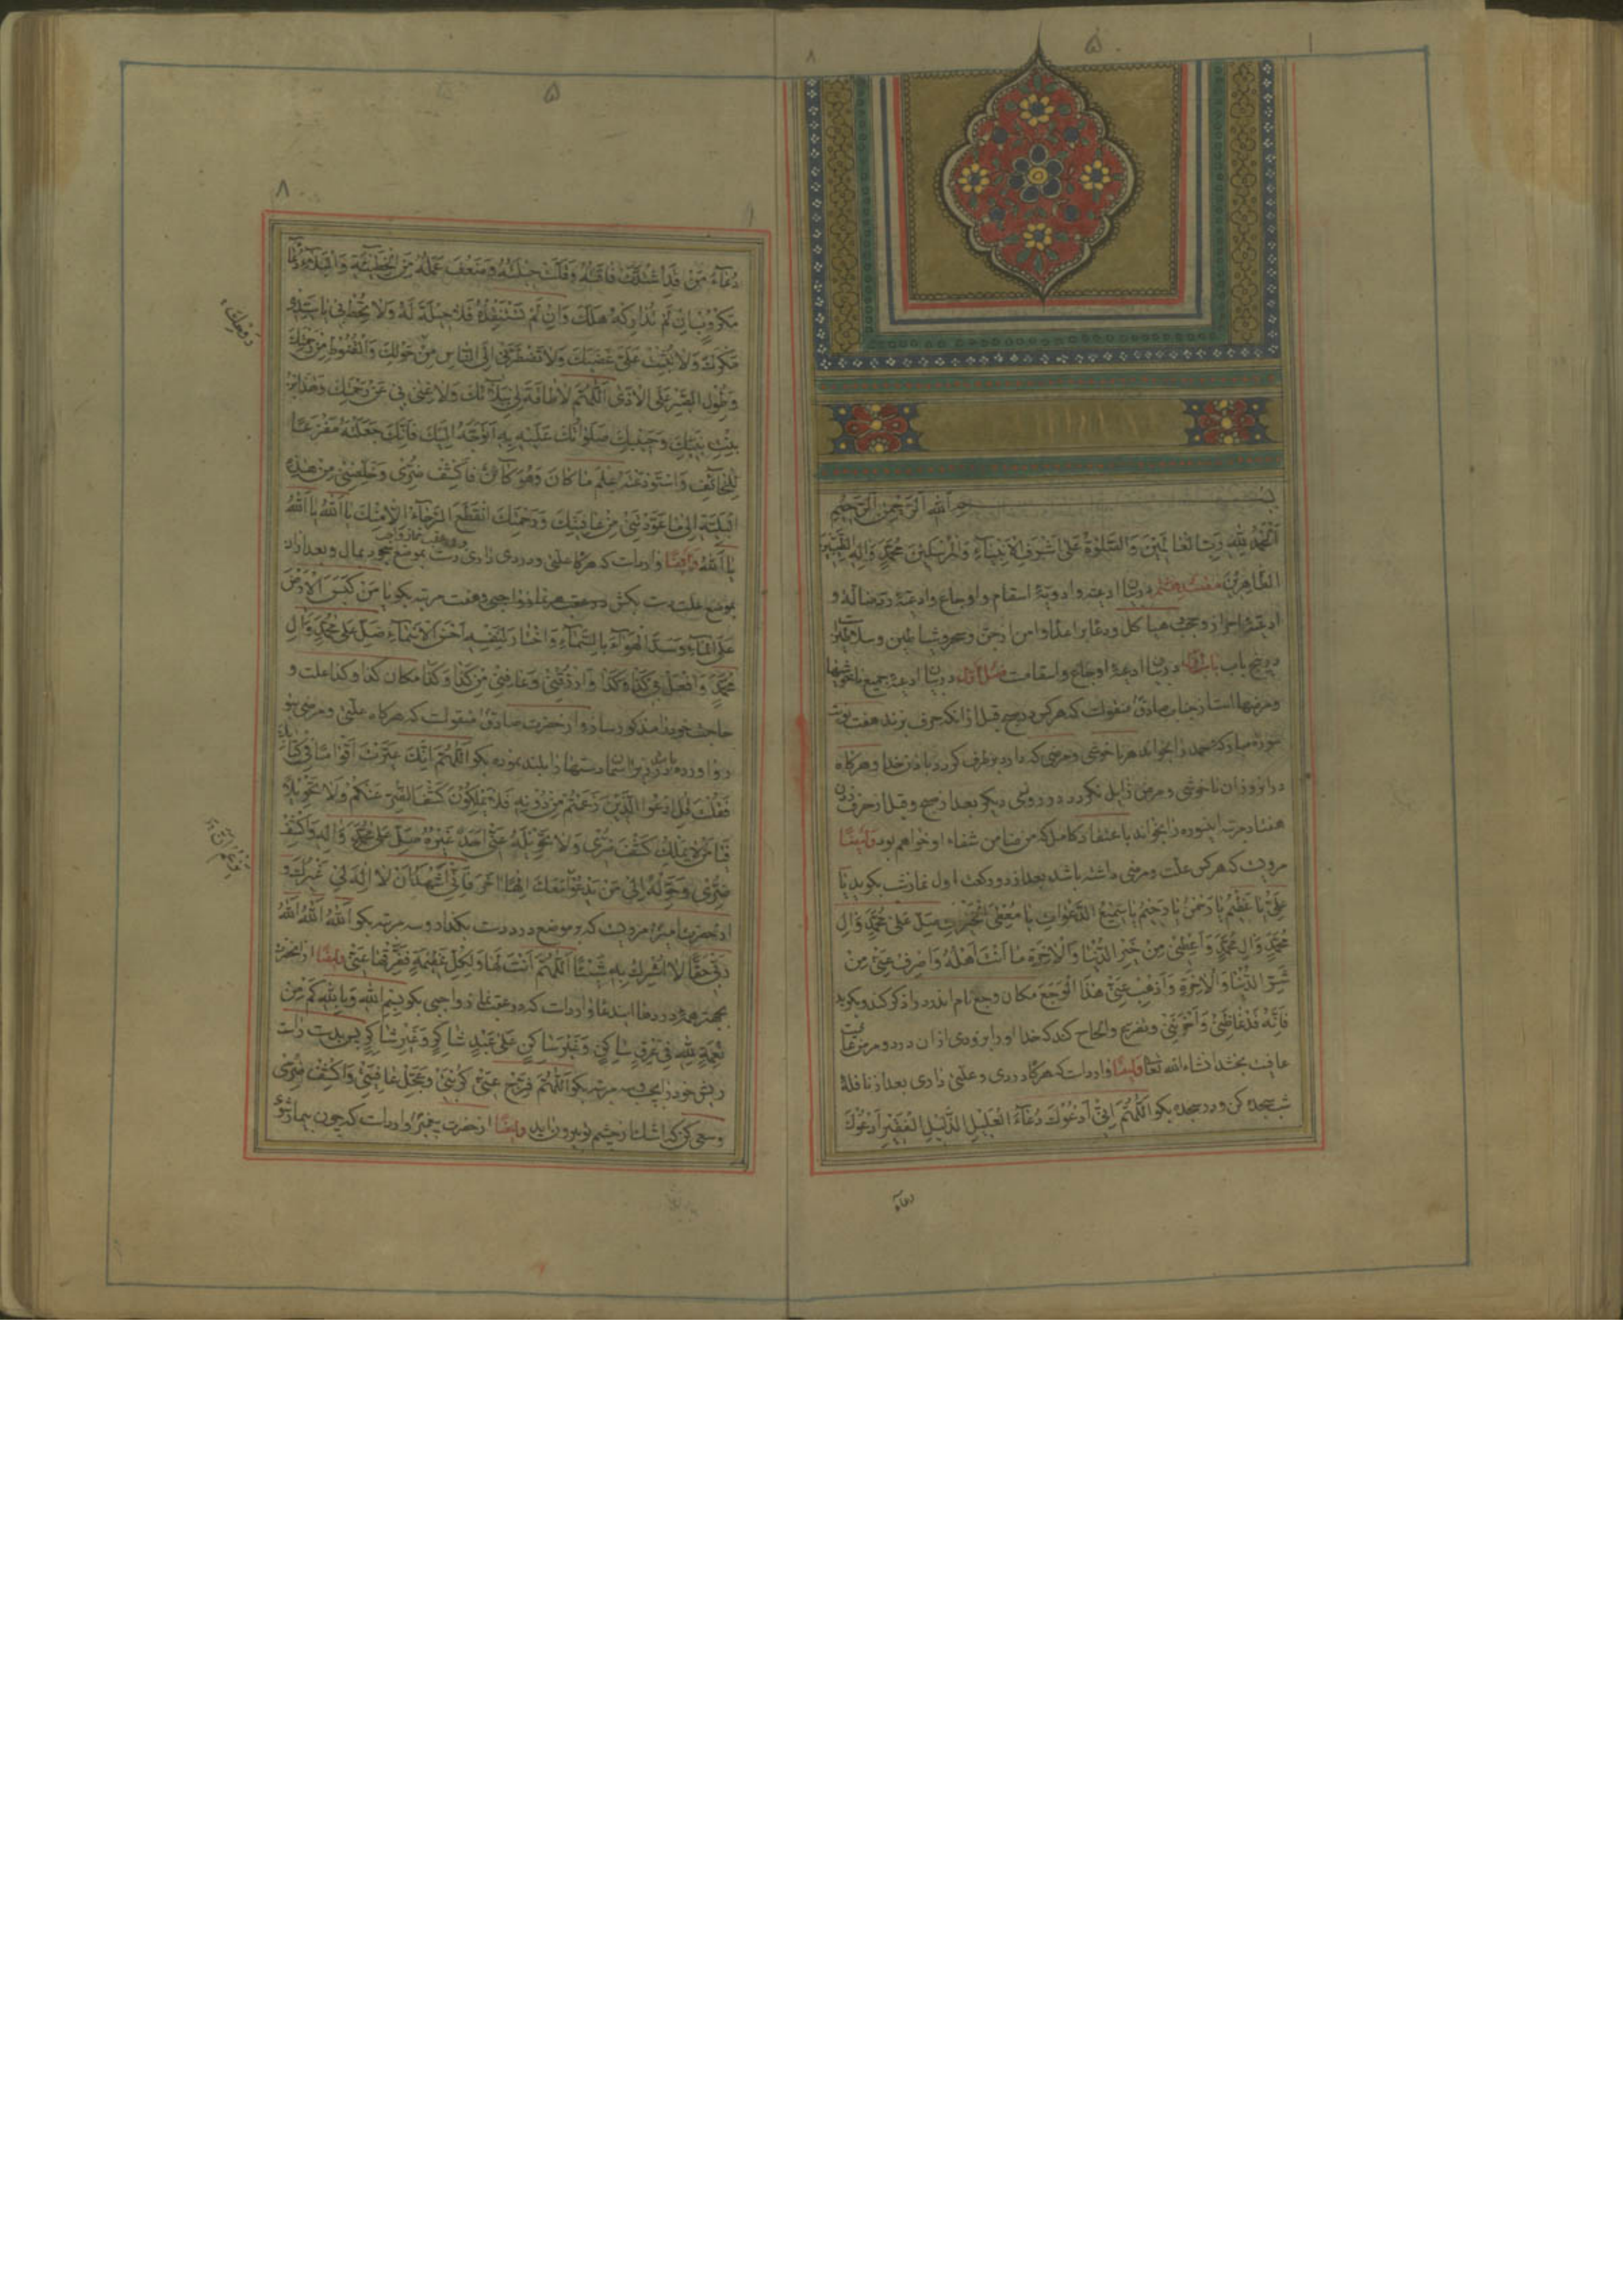 بسم الله الرحمن الرحیم
الحمد لله رب العالمین والصلوة علی اشرف الانبیاء والمرسلین محمد واله الطیبین
الطاهرین در بیان ادعیه وادویۀ اسقام و اوجاع وادعیۀ و
در پنج باب باب اول در بیان ادعیۀ اوجاع واسقامست فصل اول در بیان ادعیۀ جمیع ناخوشیها
ومرضهااست از جناب صادق منقولست که هرکس در صبح قبل از انکه حرف بزند هفت نوبت
سورۀ مبارکه حمد را بخواند هر ناخوشی و مرضی که دارد برطرف کردد باذن خدا و هرکاه
در انروز ان ناخوشی و مرض زایل نکردد در روز دیکر بعد از صبح وقبل از حرف زدن
هفتاد مرتبه اینسوره را بخواند با اعتقاد کامل که من ضامن شفاء او خواهم بود وایضا
مرویست که هرکس علت و مرضی داشته باشد بعد از دو رکعت اول نماز شب بکوید یا
علی یا عظیم یا رحمن یا رحیم یا سمیع الدعوات یا معطی الخیرات صل علی محمد وال
محمد وال محمد واعطنی من خیر الدنیا والاخرة ما انت اهله واصرف عنی من
شر الدنیا والاخرة واذهب عنی هذا الوجع مکان وجع نام اندرد را ذکر کند وبکوید
فانه قد غاظنی واحزننی وتضرع والحاح کند که خدا او را بزودی از ان درد و مرض
عافیت بخشد انشاء الله تعا وایضا وارداست که هرکاه دردی و علتی داری بعد از نافلۀ
شب سجده کن و در سجده بکو اللهم انی ادعوک دعاء العلیل الذلیل الفقیر ادعوک
دعاء
دعاء من قد اشتدت فاقته وقلت حیلته وضعف عمله من الخطیئة والبلاء دعاء
مکروب ان لم تدارکه هلک وان لم تستنقذه فلا حیلة له ولا تحط بی
مکرک ولا تثبت علی غضبک ولا تضطرنی الی الیاس من روحک والقنوط من رحمتک
وطول الصبر علی الاذی اللهم لا طاقة لی ببلائک ولا غنی بی عن رحمتک وهذا ابن
بنت نبیک وحبیبک صلواتک علیه به اتوجه الیک فانک جعلته مفزعا
للخائف واستودعته علم ما کان وهو کائن فاکشف ضری وخلصنی من هذه
البلیة الی ما عودتنی من عافیتک ورحمتک انقطع الرجاء الا منک یا الله یا الله
یا الله وایضا وارداست که هرکاه علتی و دردی داری دست بموضع سجود بمال و بعد از ان
بموضع علت دست بکش در عقب هر نماز واجبی وهفت مرتبه بکو یا من کبس الارض
علی الماء وسد الهواء بالسماء واختار لنفسه احسن الاسماء صل علی محمد وال
محمد وافعل بی کذا وکذا وارزقنی وعافنی من کذا وکذا مکان کذا وکذا علت و
حاجت خود را مذکور سازد و از حضرت صادق منقولست که هرکاه علتی و مرضی بتو
رو اورده اللهم انک عیرت اقواما فی کتابک
فقلت قل ادعوا الذین زعمتم من دونه فلا یملکون کشف الضر عنکم ولا تحویلا
فیا من لا یملک کشف ضری ولا تحویله عنی احد غیره صل علی محمد واله واکشف
ضری وحوله الی من یدعو معک الها اخر فانی اشهد ان لا اله لی غیرک و
از حضرت امیر مرویست که بر موضع درد دست بکذار و سه مرتبه بکو الله الله الله
ربی حقا لا اشرک به شیئا اللهم انت لها ولکل عظیمة ففرقها عنی وایضا از انحضرت
بجهة همه دردها ایندعا وارداست که در عقب نماز واجبی بکو بسم الله وبالله کم من
نعمة لله فی عرق ساکن وغیر ساکن علی عبد شاکر وغیر شاکر پس بدست راست
ریش خود را بکیر وسه مرتبه بکو اللهم فرج عنی کربتی وعجل عافیتی واکشف ضری
وسعی کن که اشک از چشم تو بیرون اید وایضا از حضرت پیغمبر وارداست که چون بیمار شوی